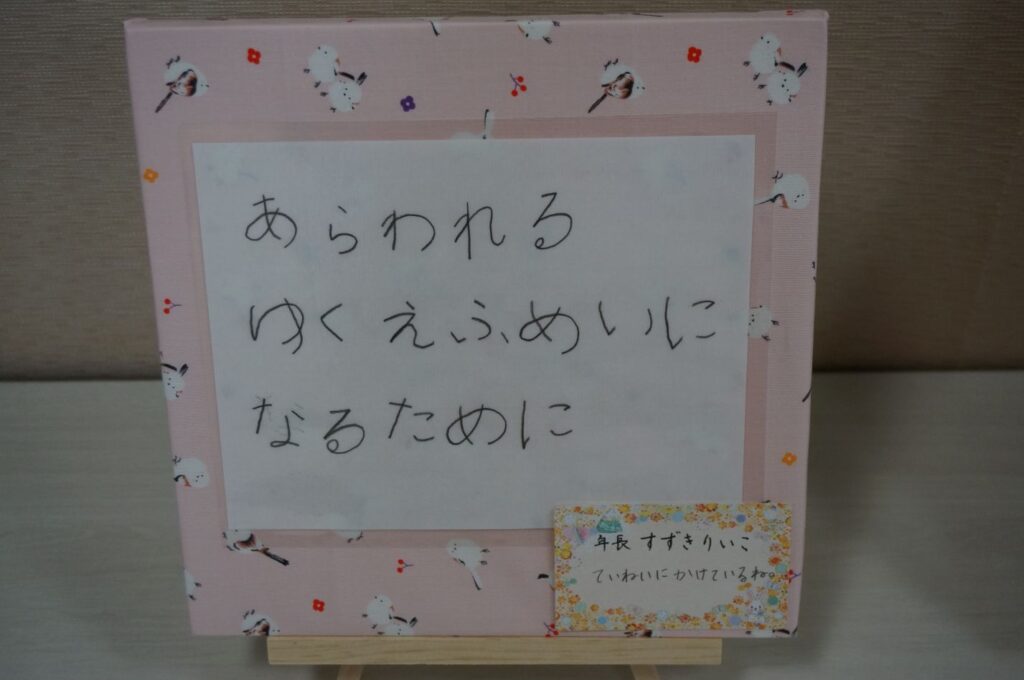 あらわれる
ゆくえふめいに
なるために
年長 すずきりいこ
ていねいにかけているね。